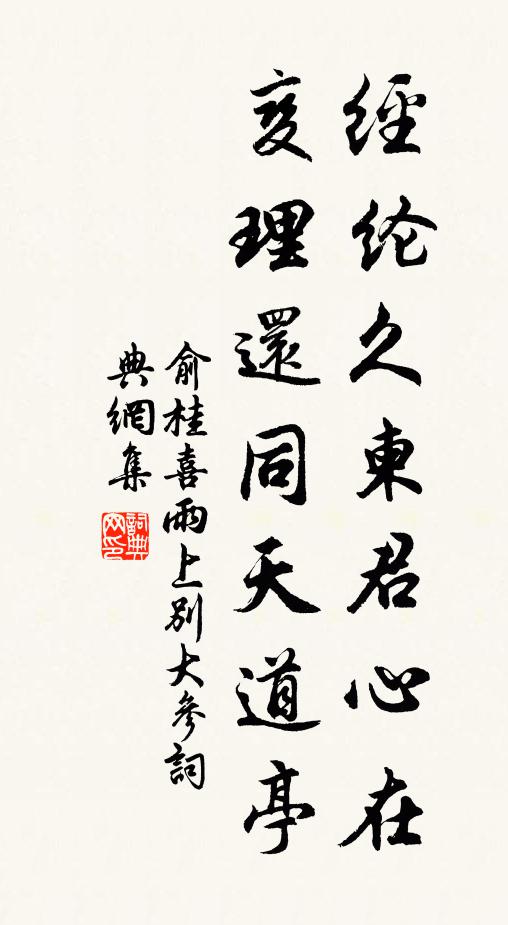 經綸久東君心在
燮理還同天道亭
俞桂喜雨上別大參詞
典網集
詞典
网印